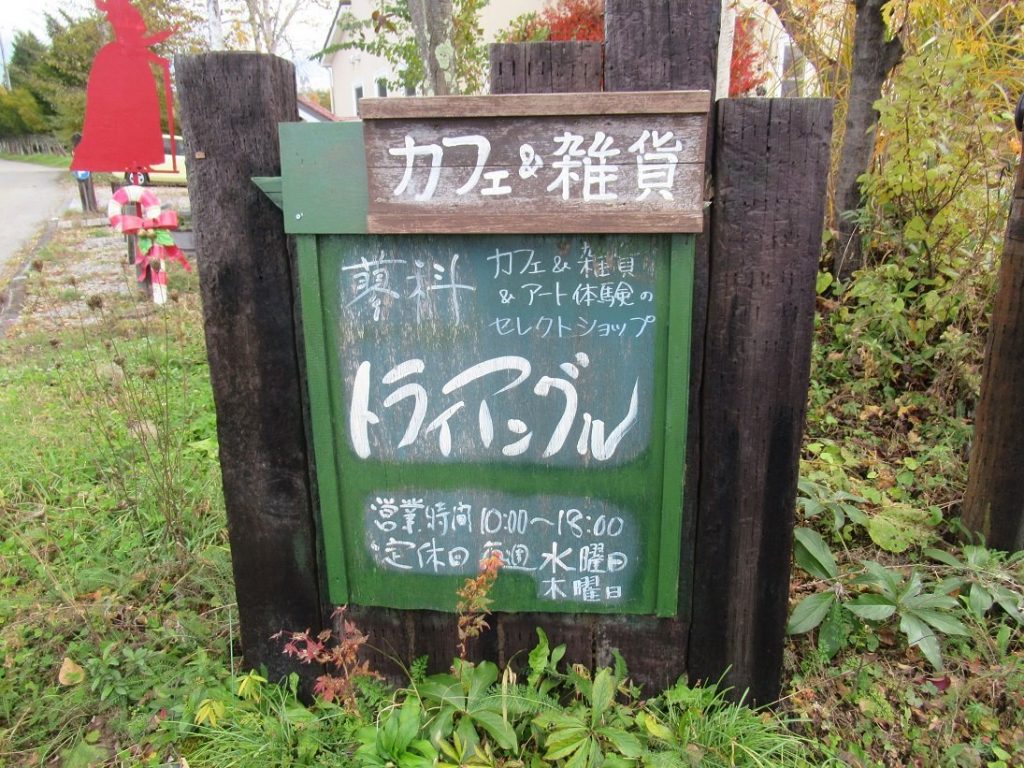 カフェ&雑貨
蓼科
カフェ&雑貨
&アート体験の
セレクトショップ
トライアングル
営業時間 10:00～18:00
定休日 毎週 水曜日
木曜日